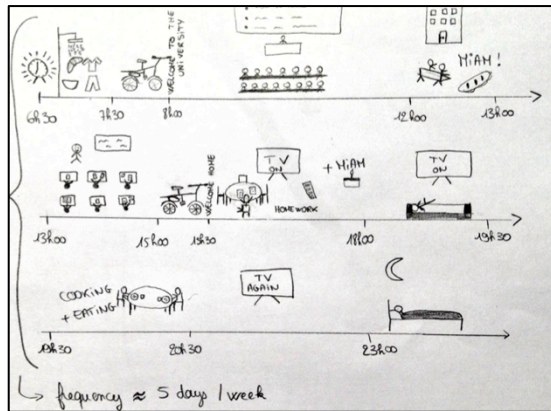 WELCOME TO THE UNIVERSITY
MIAM !
6h30 7h30 8h00 12h00 13h00
WELCOME HOME
TV ON
HOMEWORK
+ MIAM
TV ON
13h00 15h00 15h30 18h00 19h30
COOKING + EATING
TV AGAIN
19h30 20h30 23h00
frequency ≈ 5 days / week